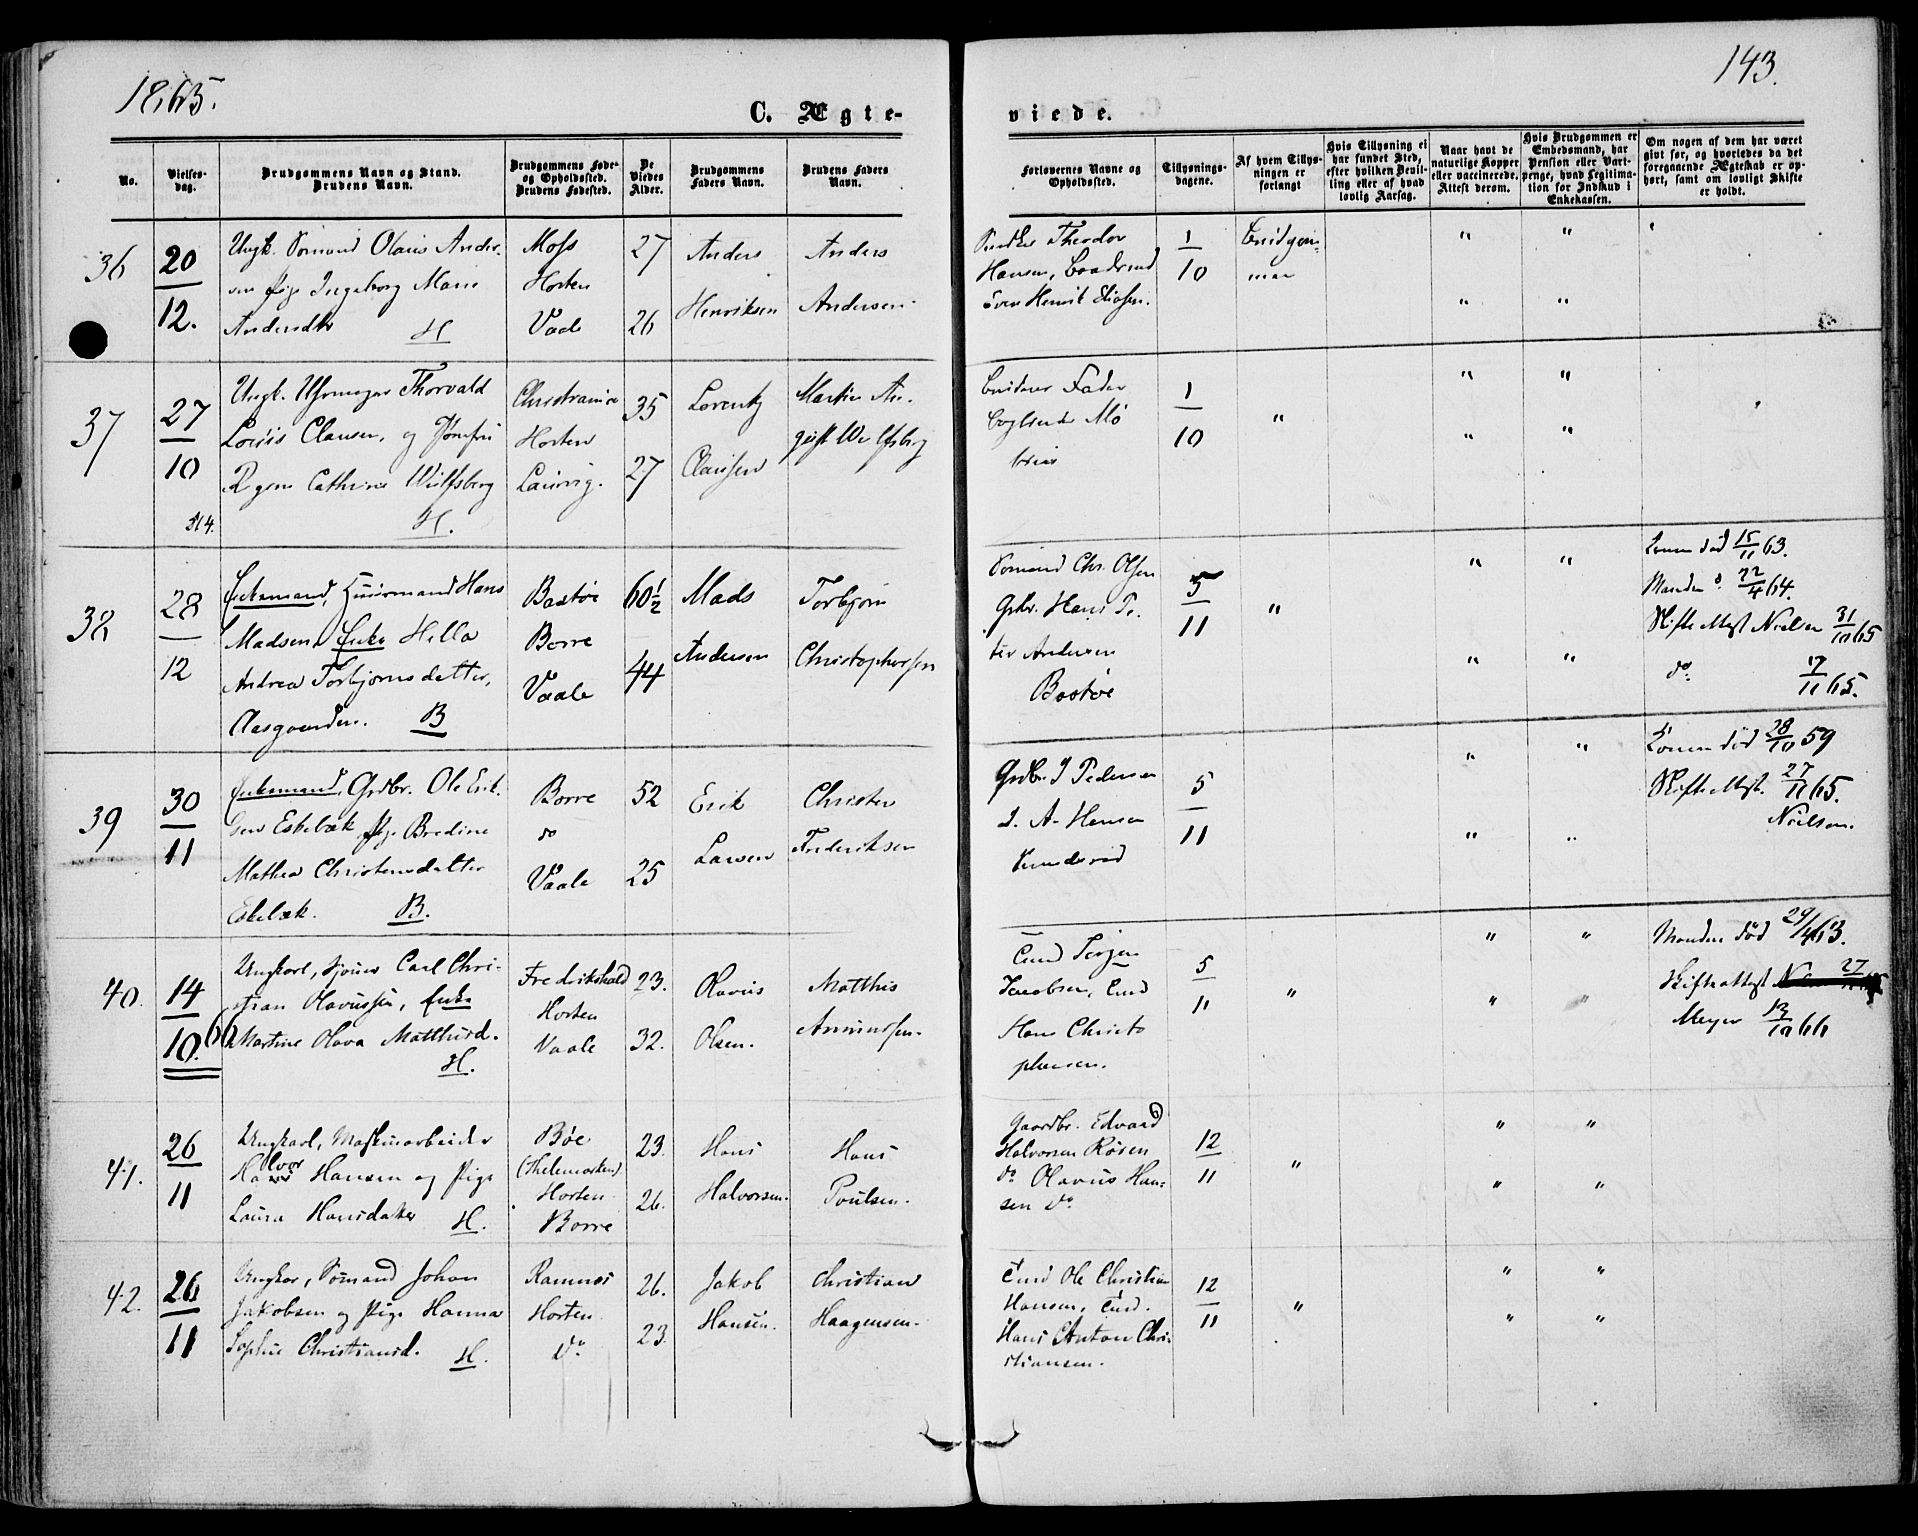 1865.
143.
C. Ægte-
viede.
No.
Vielses-
dag.
Brudgommens Navn og Stand.
Brudens Navn.
Brudgommens Føde-
og Opholdssted.
Brudens Fødested.
De
Viedes
Alder.
Brudgommens
Faders Navn.
Brudens Faders
Navn.
Forlovernes Navne og
Opholdssted.
Tillysnings-
dagene.
Af hvem Tillys-
ningen er
forlangt
Hvis Tillysning ei
har fundet Sted,
efter hvilken Bevil-
ling eller af hvad
lovlig Aarsag.
Naar havt de
naturlige Kopper
eller vaccinerede.
Attest derom.
Hvis Brudgommen er
Embedsmand, har
Pension eller Vart-
penge, hvad Legitima-
tion for Indskud i
Enkekassen.
Om nogen af dem har været
givt før, og hvorledes da det
foregaaende Ægteskab er op-
hørt, samt om lovligt Skifte
er holdt.
36
20
12.
Ungk. Sømand Olaus Ander-
sen Pige Ingeborg Marie
Andersdtr
H
Moss
Horten
Vaale
27
26
Anders
Henriksen
Anders
Andersen
Theodor
Hansen,
1
10
" "
" "
37
27
10
Ungk. Thorvald
Louis Clausen, og Jomfru
Cathrine Wulfsberg
H.
Christiania
Horten
Laurvig.
35
27
Lorentz
Clausen
Martin Au-
gust Wulfsberg
Fader
1
10
"
" "
" "
38
28
12
Enkemand, Huusmand Hans
Madsen, Enke Hella
Andrea Torbjørnsdatter,
Aasgaarden. B
Bastøe
Borre
Vaale
60 1/2
44
Mads
Andersen
Torbjørn
Christophersen
Sømand Chr. Olsen
Grbr. Hans Pe-
ter Andersen
Bastøe
5
11
"
" "
" "
Konen død 15/11 63.
Manden d. 22/4 64.
Skifte Attest Nielsen 31/10 65
do. 17/11 65.
39
30
11
Enkemand, Grdbr. Ole Erik-
sen Eskebæk, Pige Bredine
Mathea Christensdatter
Eskebæk. B.
Borre
do
Vaale
52
25
Erik
Larsen
Christen
Frederiksen
Grdbr. J Pedersen
A. Hansen
5
11
" "
" "
Konen død 28/10 59
Skifte Attest. 27/11 65.
Nielsen.
40.
14
10. 66
Ungkarl, Carl Chri-
stian Olavussen, Enke
Martine Olava Matthisd.
H.
Fredrikshald
Horten
Vaale
23.
32.
Olavus
Olsen.
Matthis
Amundsen.
Jacobsen,
Hans Christo
phersen.
5
11
"
" "
" "
Manden død 29/4 63.
Skifteattest
Meyer 12/10 66
41.
26
11
Ungkarl, Maskinarbeider
Halvor Hansen og Pige
Laura Hansdatter H.
Bøe
(Thelemarken)
Horten
Borre
23.
26.
Hans
Halvorsen.
Hans
Poulsen.
Gaardbr. Edvard
Halvorsen Røren
do Olavus Han-
sen do
12
11
"
" "
" "
42.
26
11
Ungkar, Sømand Johan
Jakobsen og Pige Hanna
Sophie Christiansd. H.
Ramnæs
Horten
do
26.
23.
Jakob
Hansen.
Christian
Haagensen.
Ole Christian
Hansen,
Hans Anton Chri-
stiansen.
12
11
"
" "
" "